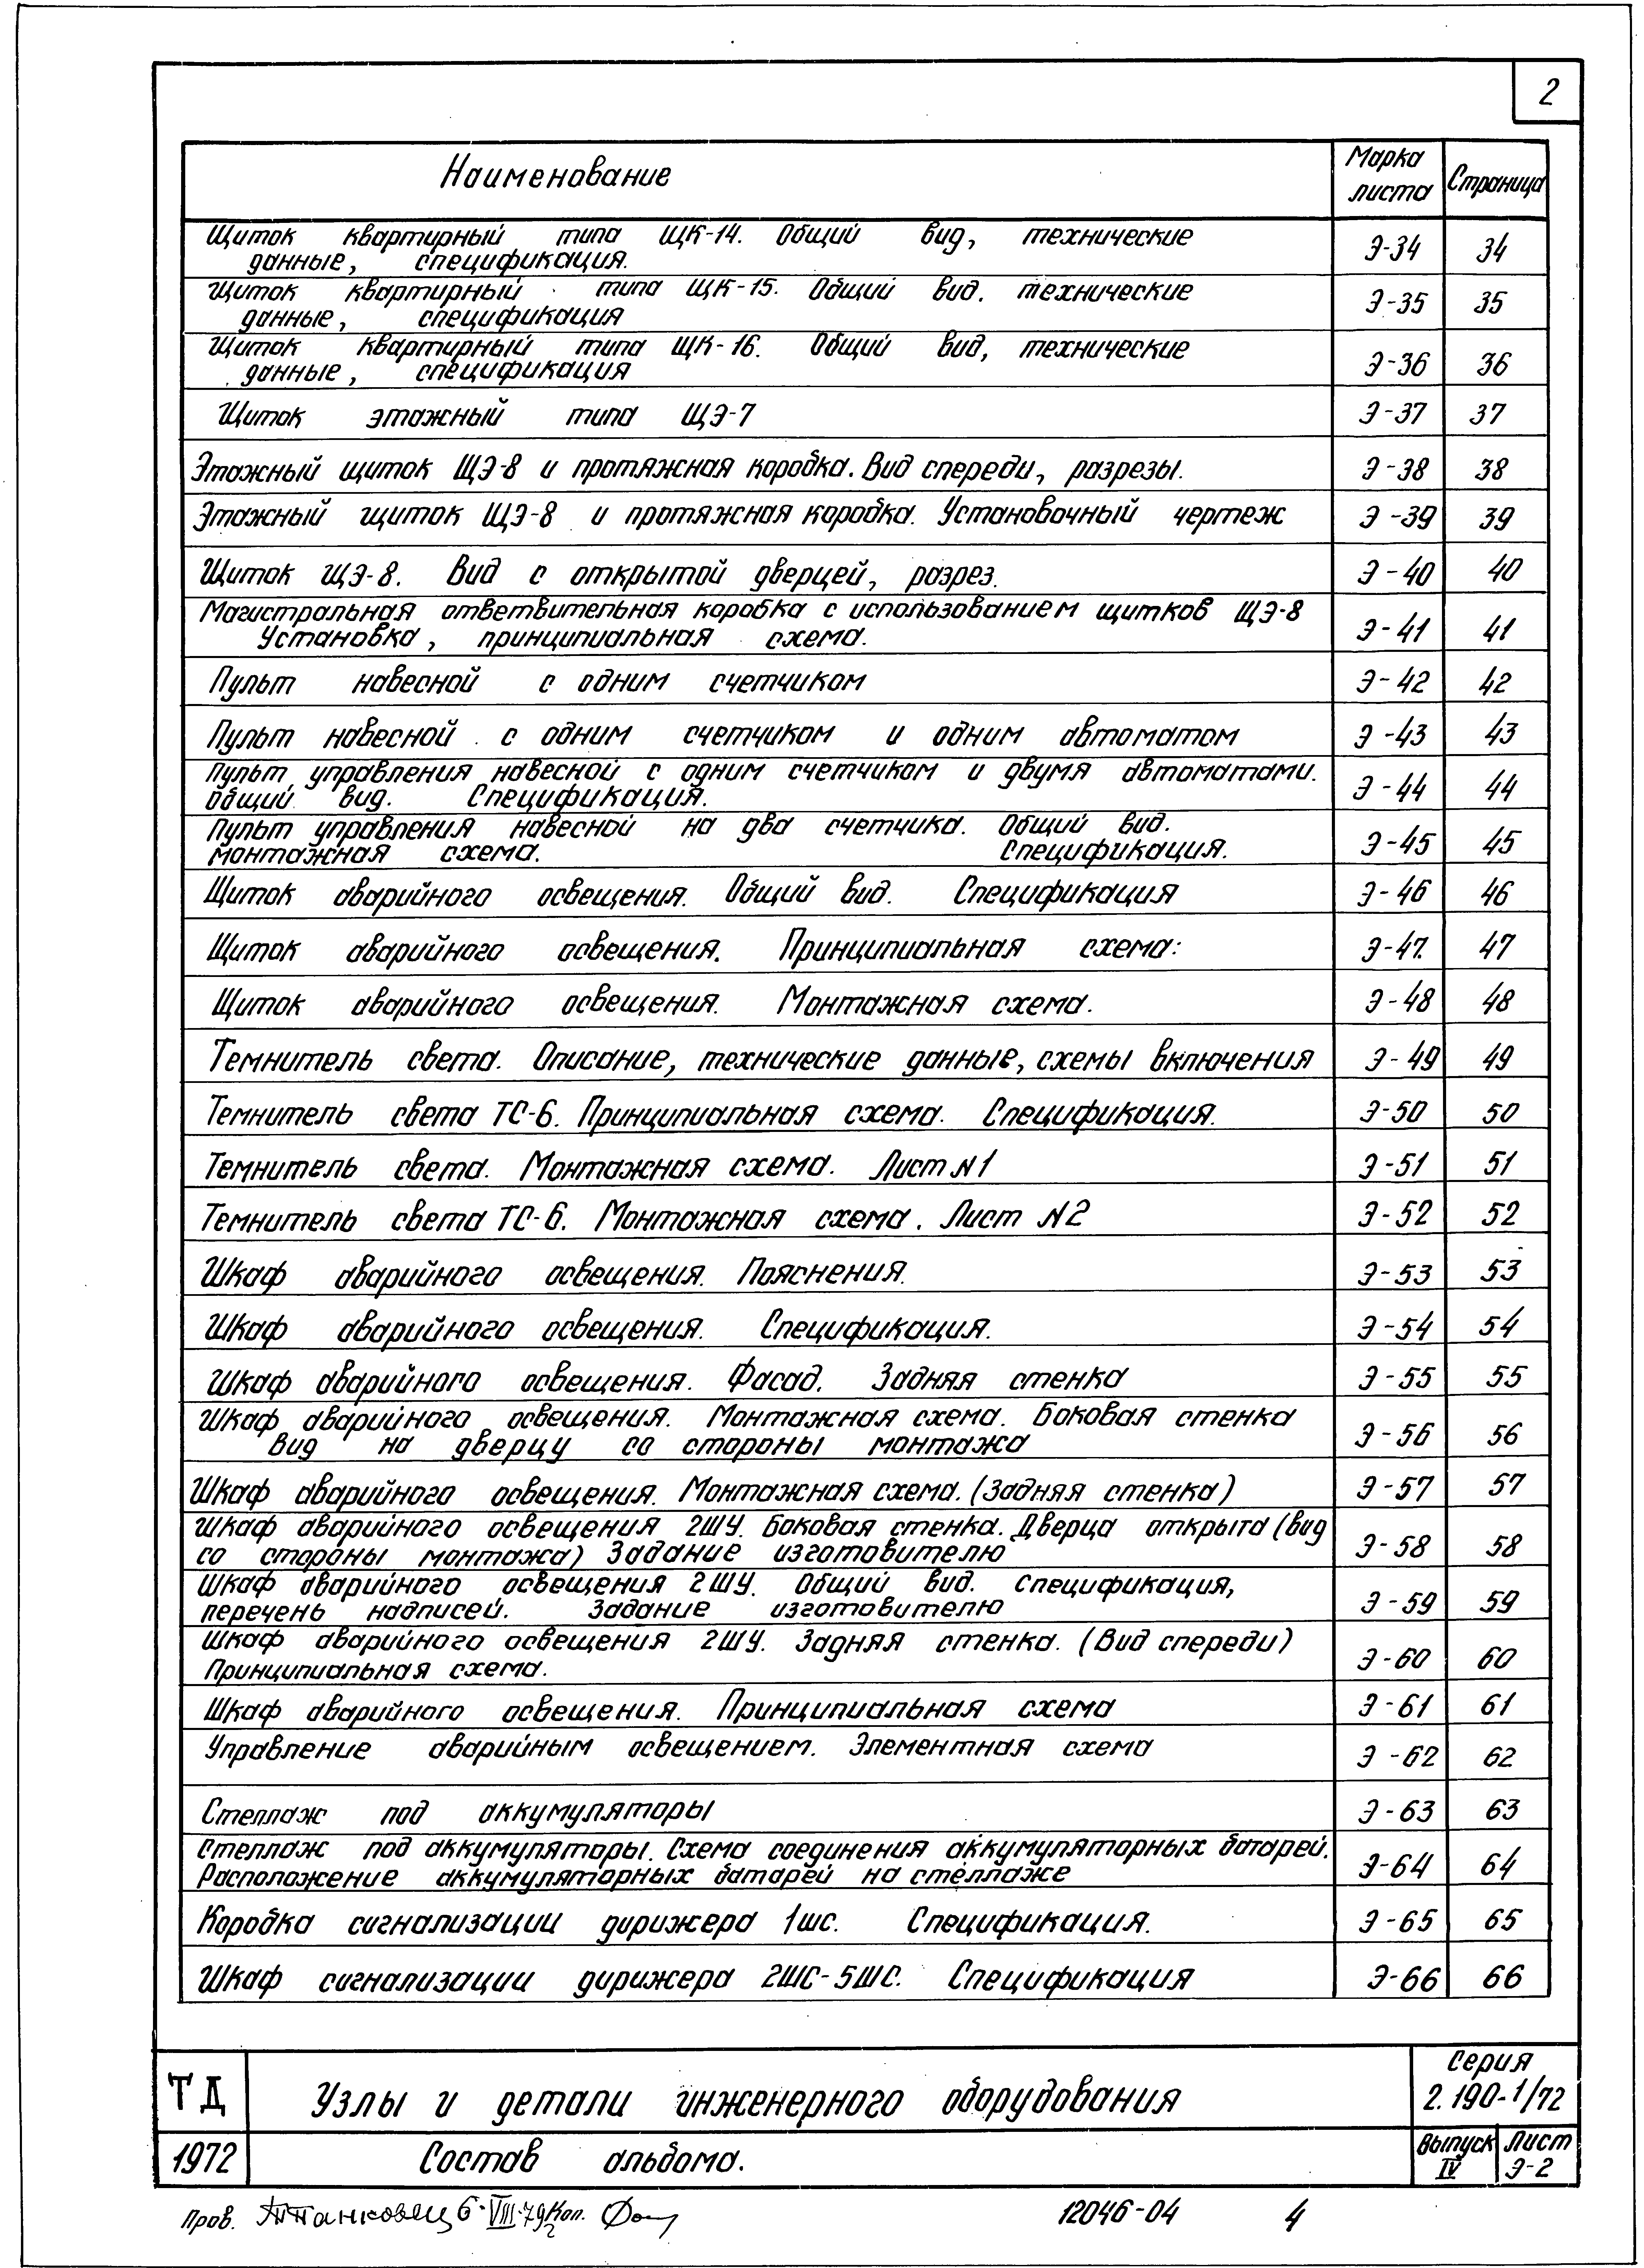 2
Наименование
Марка листа
Страница
Щиток квартирный типа ЩК-14. Общий вид, технические
данные, спецификация.
Э-34 34
Щиток квартирный типа ЩК-15. Общий вид. технические
данные, спецификация
Э-35 35
Щиток квартирный типа ЩК-16. Общий вид, технические
данные, спецификация
Э-36 36
Щиток этажный типа ЩЭ-7 Э-37 37
Этажный щиток ЩЭ-8 и протяжная коробка. Вид спереди, разрезы. Э-38 38
Этажный щиток ЩЭ-8 и протяжная коробка. Установочный чертеж Э-39 39
Щиток ЩЭ-8. Вид с открытой дверцей, разрез. Э-40 40
Магистральная ответвительная коробка с использованием щитков ЩЭ-8
Установка, принципиальная схема.
Э-41 41
Пульт навесной с одним счетчиком Э-42 42
Пульт навесной с одним счетчиком и одним автоматом Э-43 43
Пульт управления навесной с одним счетчиком и двумя автоматами.
Общий вид. Спецификация.
Э-44 44
Пульт управления навесной на два счетчика. Общий вид.
монтажная схема. Спецификация.
Э-45 45
Щиток аварийного освещения. Общий вид. Спецификация Э-46 46
Щиток аварийного освещения. Принципиальная схема: Э-47. 47
Щиток аварийного освещения. Монтажная схема. Э-48 48
Темнитель света. Описание, технические данные, схемы включения Э-49 49
Темнитель света ТС-6. Принципиальная схема. Спецификация. Э-50 50
Темнитель света. Монтажная схема. Лист N1 Э-51 51
Темнитель света ТС-6. Монтажная схема. Лист N2 Э-52 52
Шкаф аварийного освещения. Пояснения. Э-53 53
Шкаф аварийного освещения. Спецификация. Э-54 54
Шкаф аварийного освещения. Фасад. Задняя стенка Э-55 55
Шкаф аварийного освещения. Монтажная схема. Боковая стенка
вид на дверцу со стороны монтажа
Э-56 56
Шкаф аварийного освещения. Монтажная схема. (Задняя стенка) Э-57 57
Шкаф аварийного освещения 2ШУ. Боковая стенка. Дверца открыта (вид
со стороны монтажа) Задание изготовителю
Э-58 58
Шкаф аварийного освещения 2ШУ. Общий вид. Спецификация,
перечень надписей. Задание изготовителю
Э-59 59
Шкаф аварийного освещения 2ШУ. Задняя стенка. (Вид спереди)
Принципиальная схема.
Э-60 60
Шкаф аварийного освещения. Принципиальная схема Э-61 61
Управление аварийным освещением. Элементная схема Э-62 62
Стеллаж под аккумуляторы Э-63 63
Стеллаж под аккумуляторы. Схема соединения аккумуляторных батарей.
Расположение аккумуляторных батарей на стеллаже
Э-64 64
Коробка сигнализации дирижера 1шс. Спецификация. Э-65 65
Шкаф сигнализации дирижера 2ШС-5ШС. Спецификация Э-66 66
ТД
Узлы и детали инженерного оборудования
Серия
2.190-1/72
1972
Состав альбома.
Выпуск
IV
Лист
Э-2
Пров. Коп.
12046-04 4